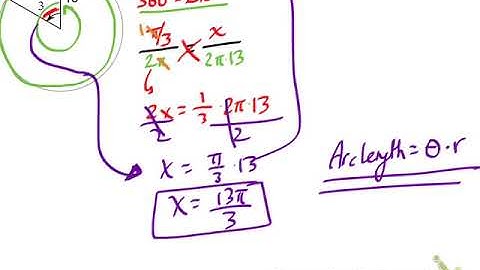 3
1·π/3 / 2π = x / 2π·13
2x = 1/3 · 2π·13
2 2
x = π/3 · 13
x = 13π/3
Arc length = θ·r